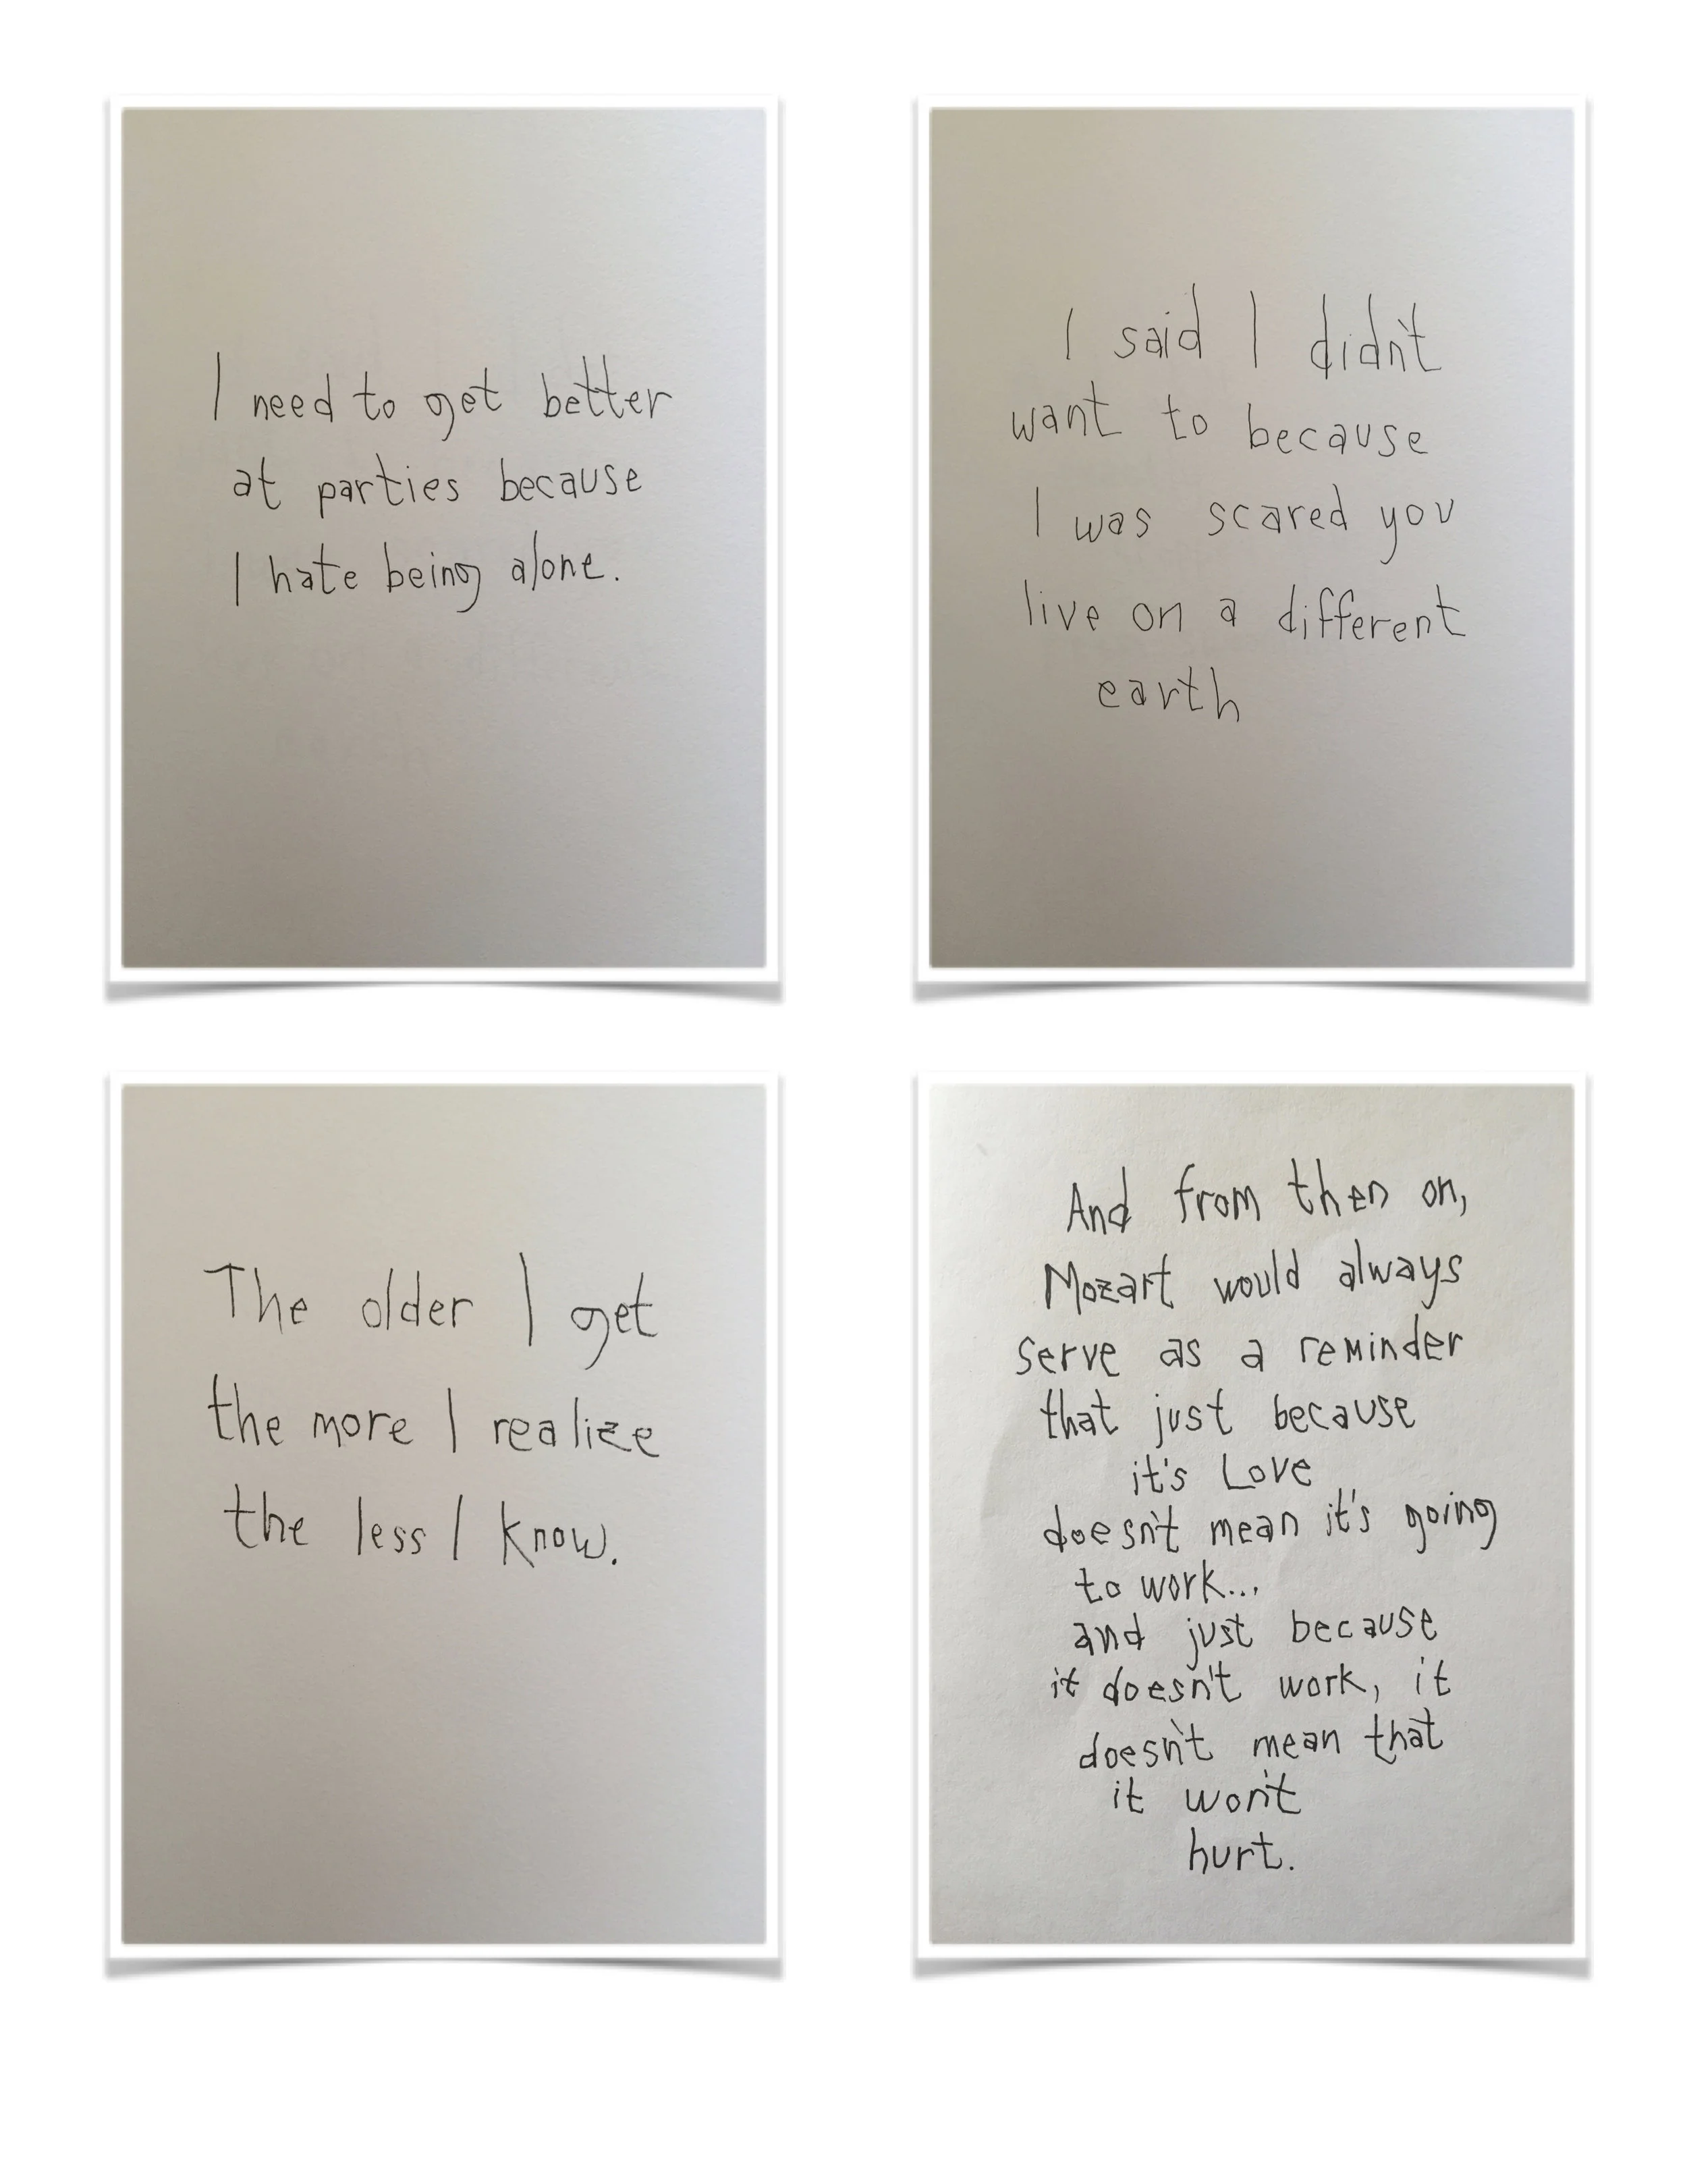 I need to get better
at parties because
I hate being alone.
I said I didn't
want to because
I was scared you
live on a different
earth
The older I get
the more I realize
the less I know.
And from then on,
Mozart would always
serve as a reminder
that just because
it's Love
doesn't mean it's going
to work...
and just because
it doesn't work, it
doesn't mean that
it won't
hurt.